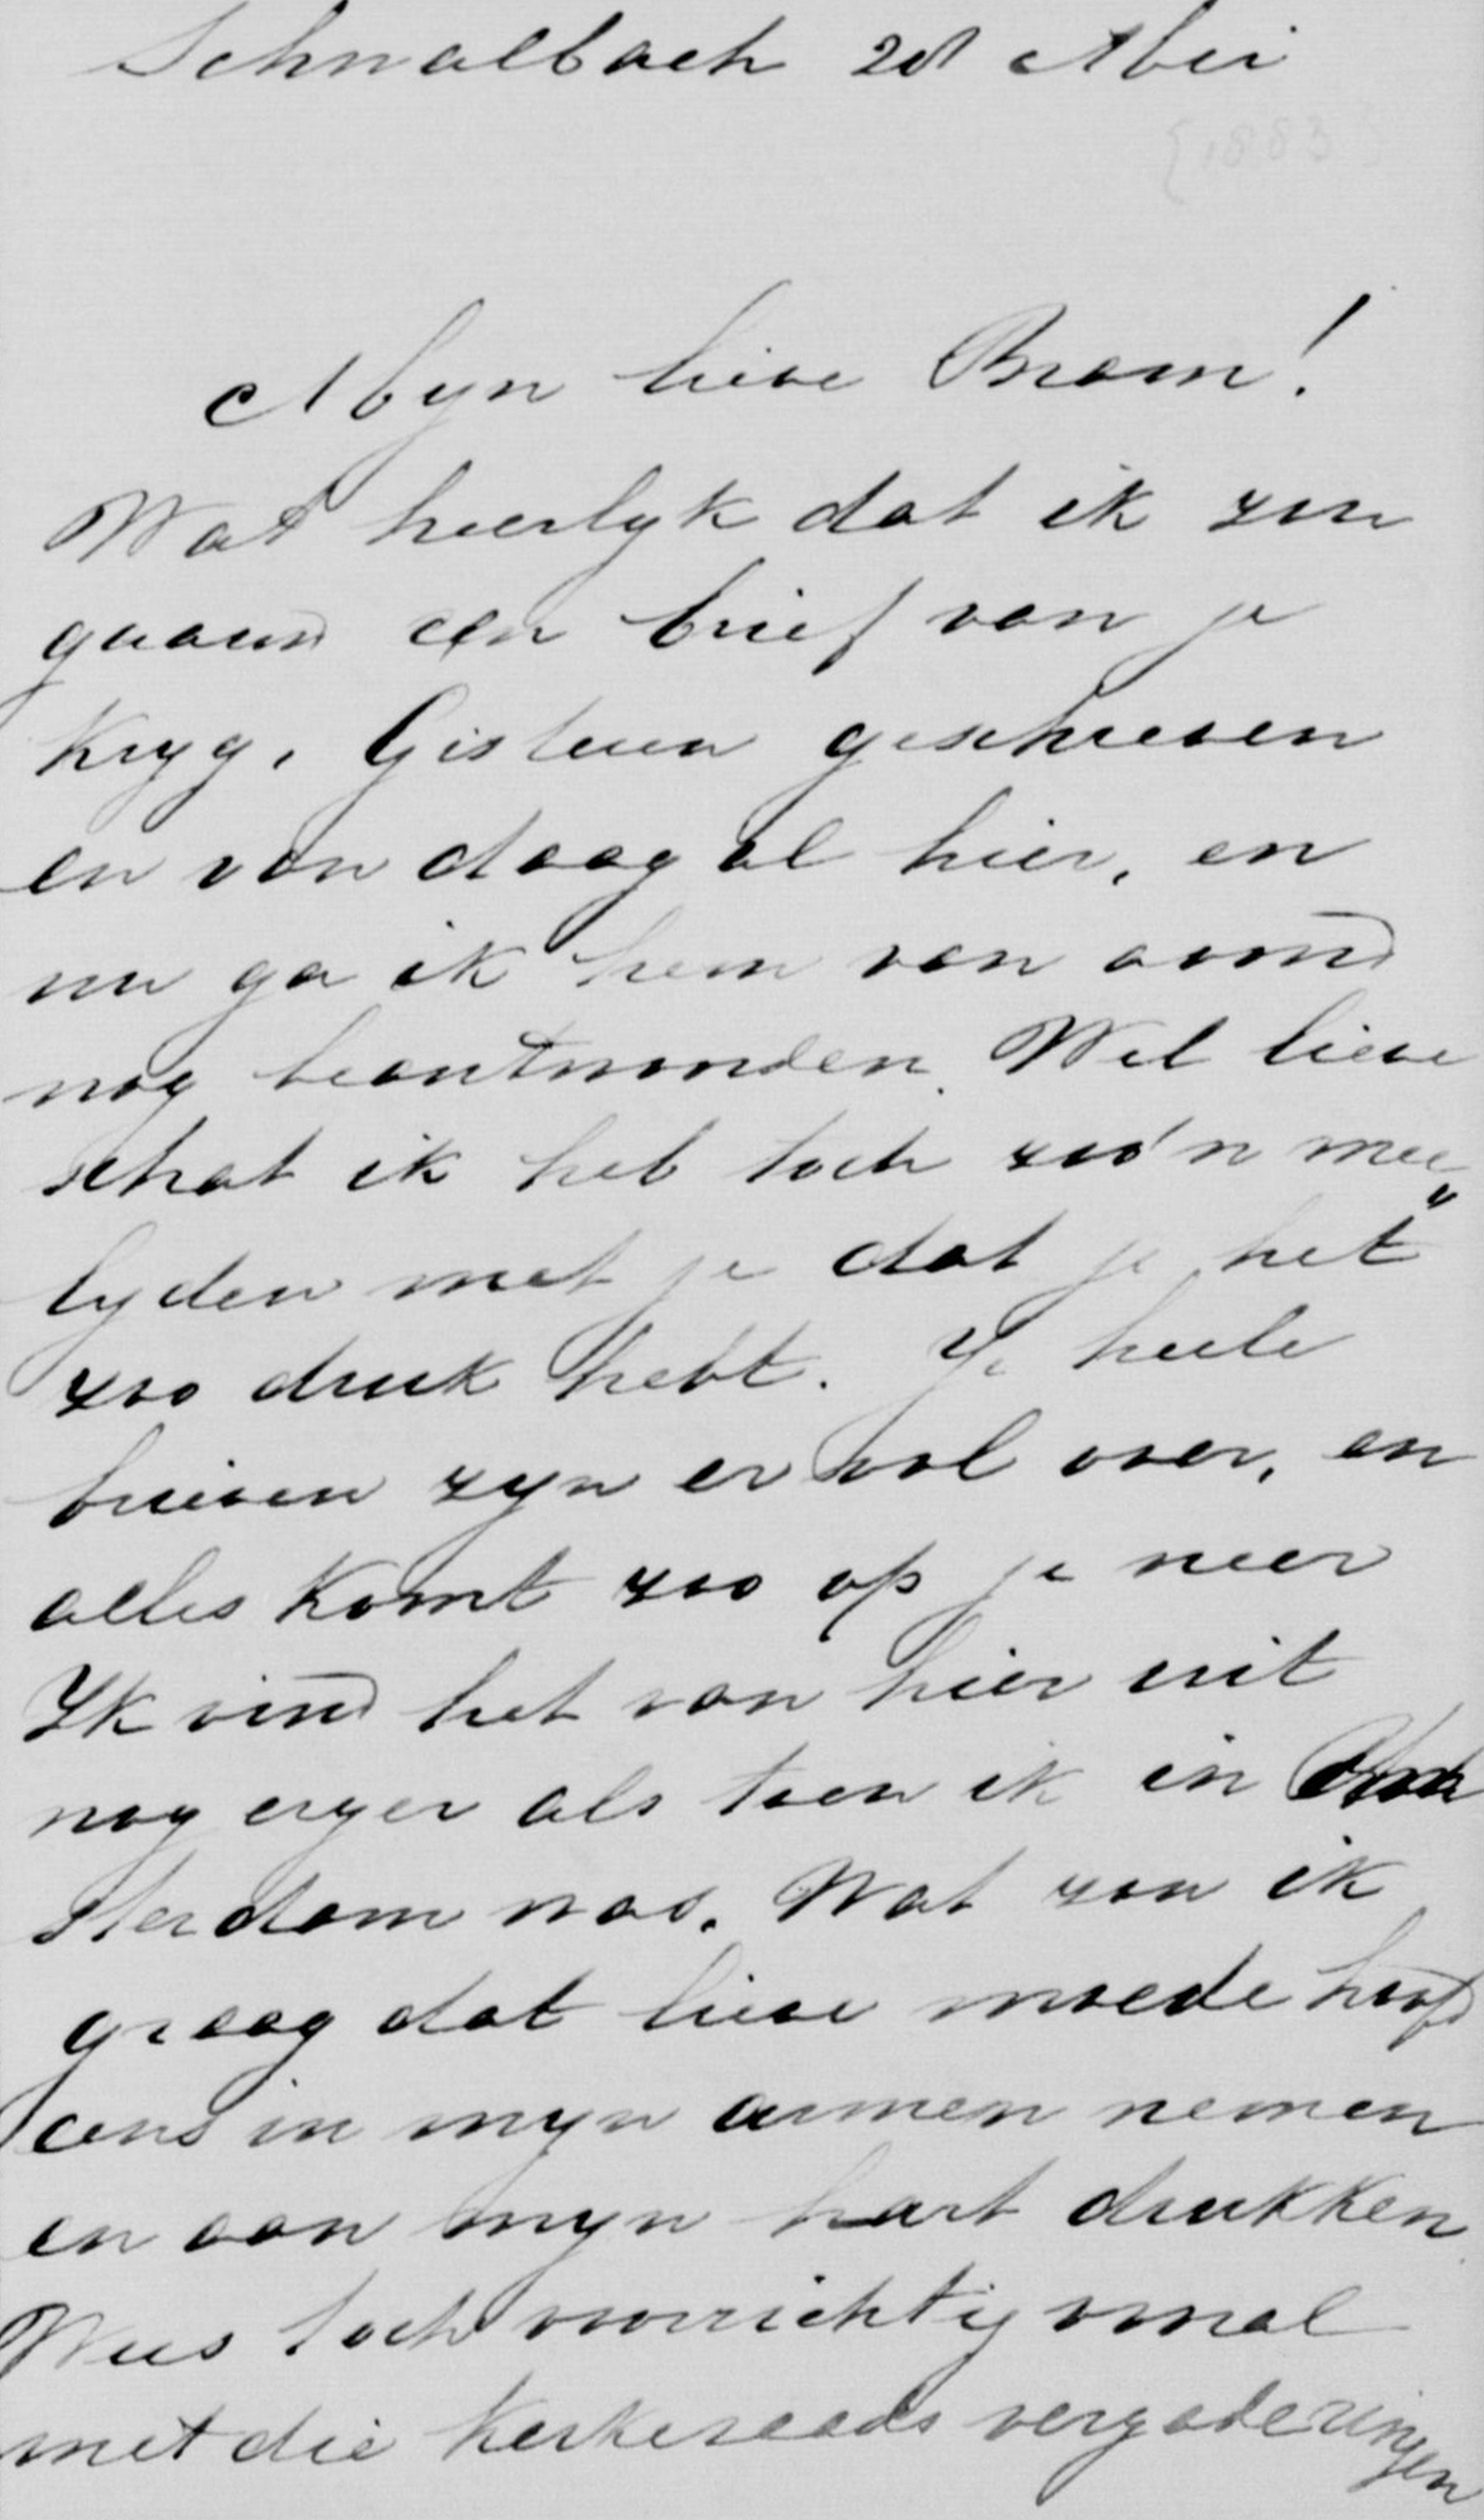 Schwalbach 28 Mei
{1883}
Myn lieve Bram!
Wat heerlyk dat ik zoo
gaauw een brief van je
kryg. Gisteren geschreven
en van daag al hier, en
nu ga ik hem van avond
nog beantwoorden. Wel lieve
schat ik heb toch zoo'n mee„
lyden met je dat je het
zoo druk hebt. Je heele
brieven zyn er vol over, en
alles komt zoo op je neer
Ik vind het van hier uit
nog erger als toen ik in Am
sterdam was. Wat zou ik
graag dat lieve moede hoofd
eens in myn armen nemen
en aan myn hart drukken
Wees toch voorzichtig vooral
met die kerkeraads vergaderingen